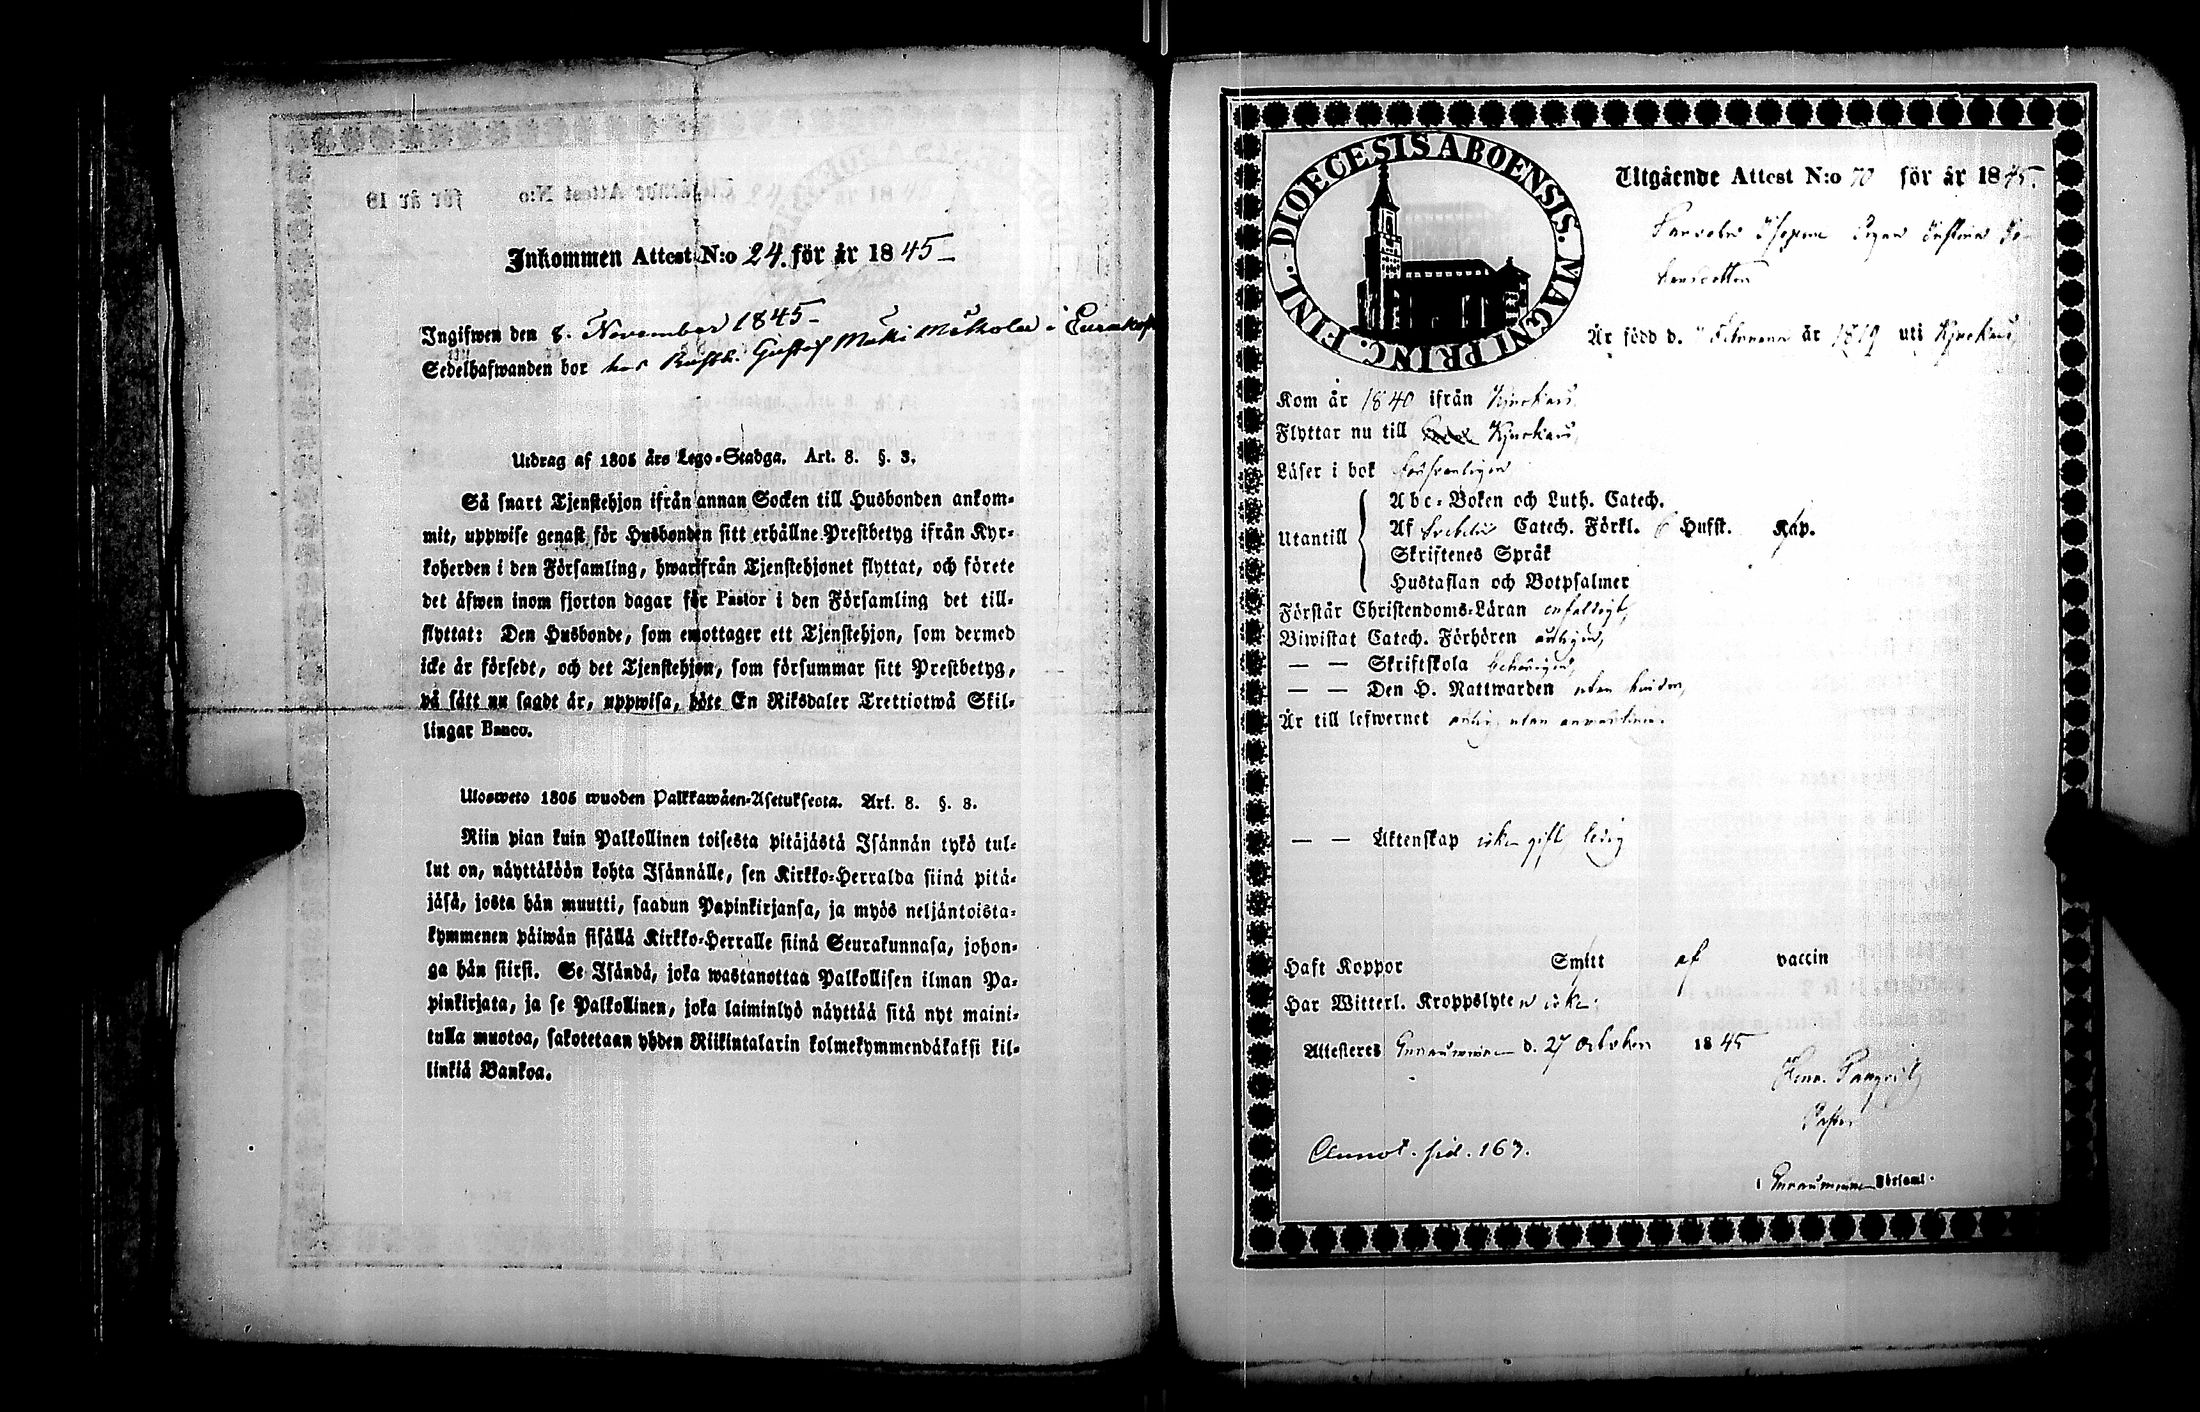 Inkommen Attest N:o 24. för år 1845
Ingifwen den 8. November 1845
Sedelhafwanden bor hos Rusth. Gustaf Mäki i
Utdrag af 1805 års Lego-Stadga. Art. 8. §. 3.
Så snart Tjenstehjon ifrån annan Socken till Husbonden ankom-
mit, uppwise genast för Husbonden sitt erhållne Prestbetyg ifrån Kyr-
koherden i den Församling, hwarifrån Tjenstehjonet flyttat, och förete
det äfwen inom fjorton dagar för Pastor i den Församling det till-
flyttat: Den Husbonde, som emottager ett Tjenstehjon, som dermed
icke är försedt, och det Tjenstehjon, som försummar sitt Prestbetyg,
på sätt nu sagdt är, uppwisa, böte En Riksdaler Trettiotwå Skil-
lingar Banco.
Ulosweto 1805 wuoden Palkkawäen-Asetuksesta. Art. 8. §. 3.
Niin pian kuin Palkollinen toisesta pitäjästä Isännän tykö tul-
lut on, näyttäköön kohta Isännälle, sen Kirkko-Herralda siinä pitä-
jäsä, josta hän muutti, saadun Papinkirjansa, ja myös neljäntoista-
kymmenen päiwän sisällä Kirkko-Herralle siinä Seurakunnasa, johon-
ga hän siirsi. Se Isändä, joka wastanottaa Palkollisen ilman Pa-
pinkirjata, ja se Palkollinen, joka laiminlyö näyttää sitä nyt maini-
tulla muotoa, sakotetaan yhden Riikintalarin kolmekymmendäkaksi kil-
linkiä Bankoa.
DIOECESIS ABOENSIS. MAGNI PRINC. FINL.
Utgående Attest N:o 70 för år 1845.
Är född d. år 1819 uti
Kom år 1840 ifrån
Flyttar nu till
Läser i bok
Utantill
Abc-Boken och Luth. Catech.
Af Catech. Förkl. 6 Hufst. Kap.
Skriftenes Språk
Hustaflan och Botpsalmer
Förstår Christendoms-Läran enfaldigt,
Biwistat Catech. Förhören
— — Skriftskola behörigen,
— — Den H. Nattwarden utan hinder,
Är till lefwernet ärlig, utan anmärkning.
— — Äktenskap icke gift, ledig
Haft Koppor Smitt af vaccin
Har Witterl. Kroppslyten icke;
Attesteres d. 27 October 1845
Pastor
Annot. sid. 163.
i Församl.